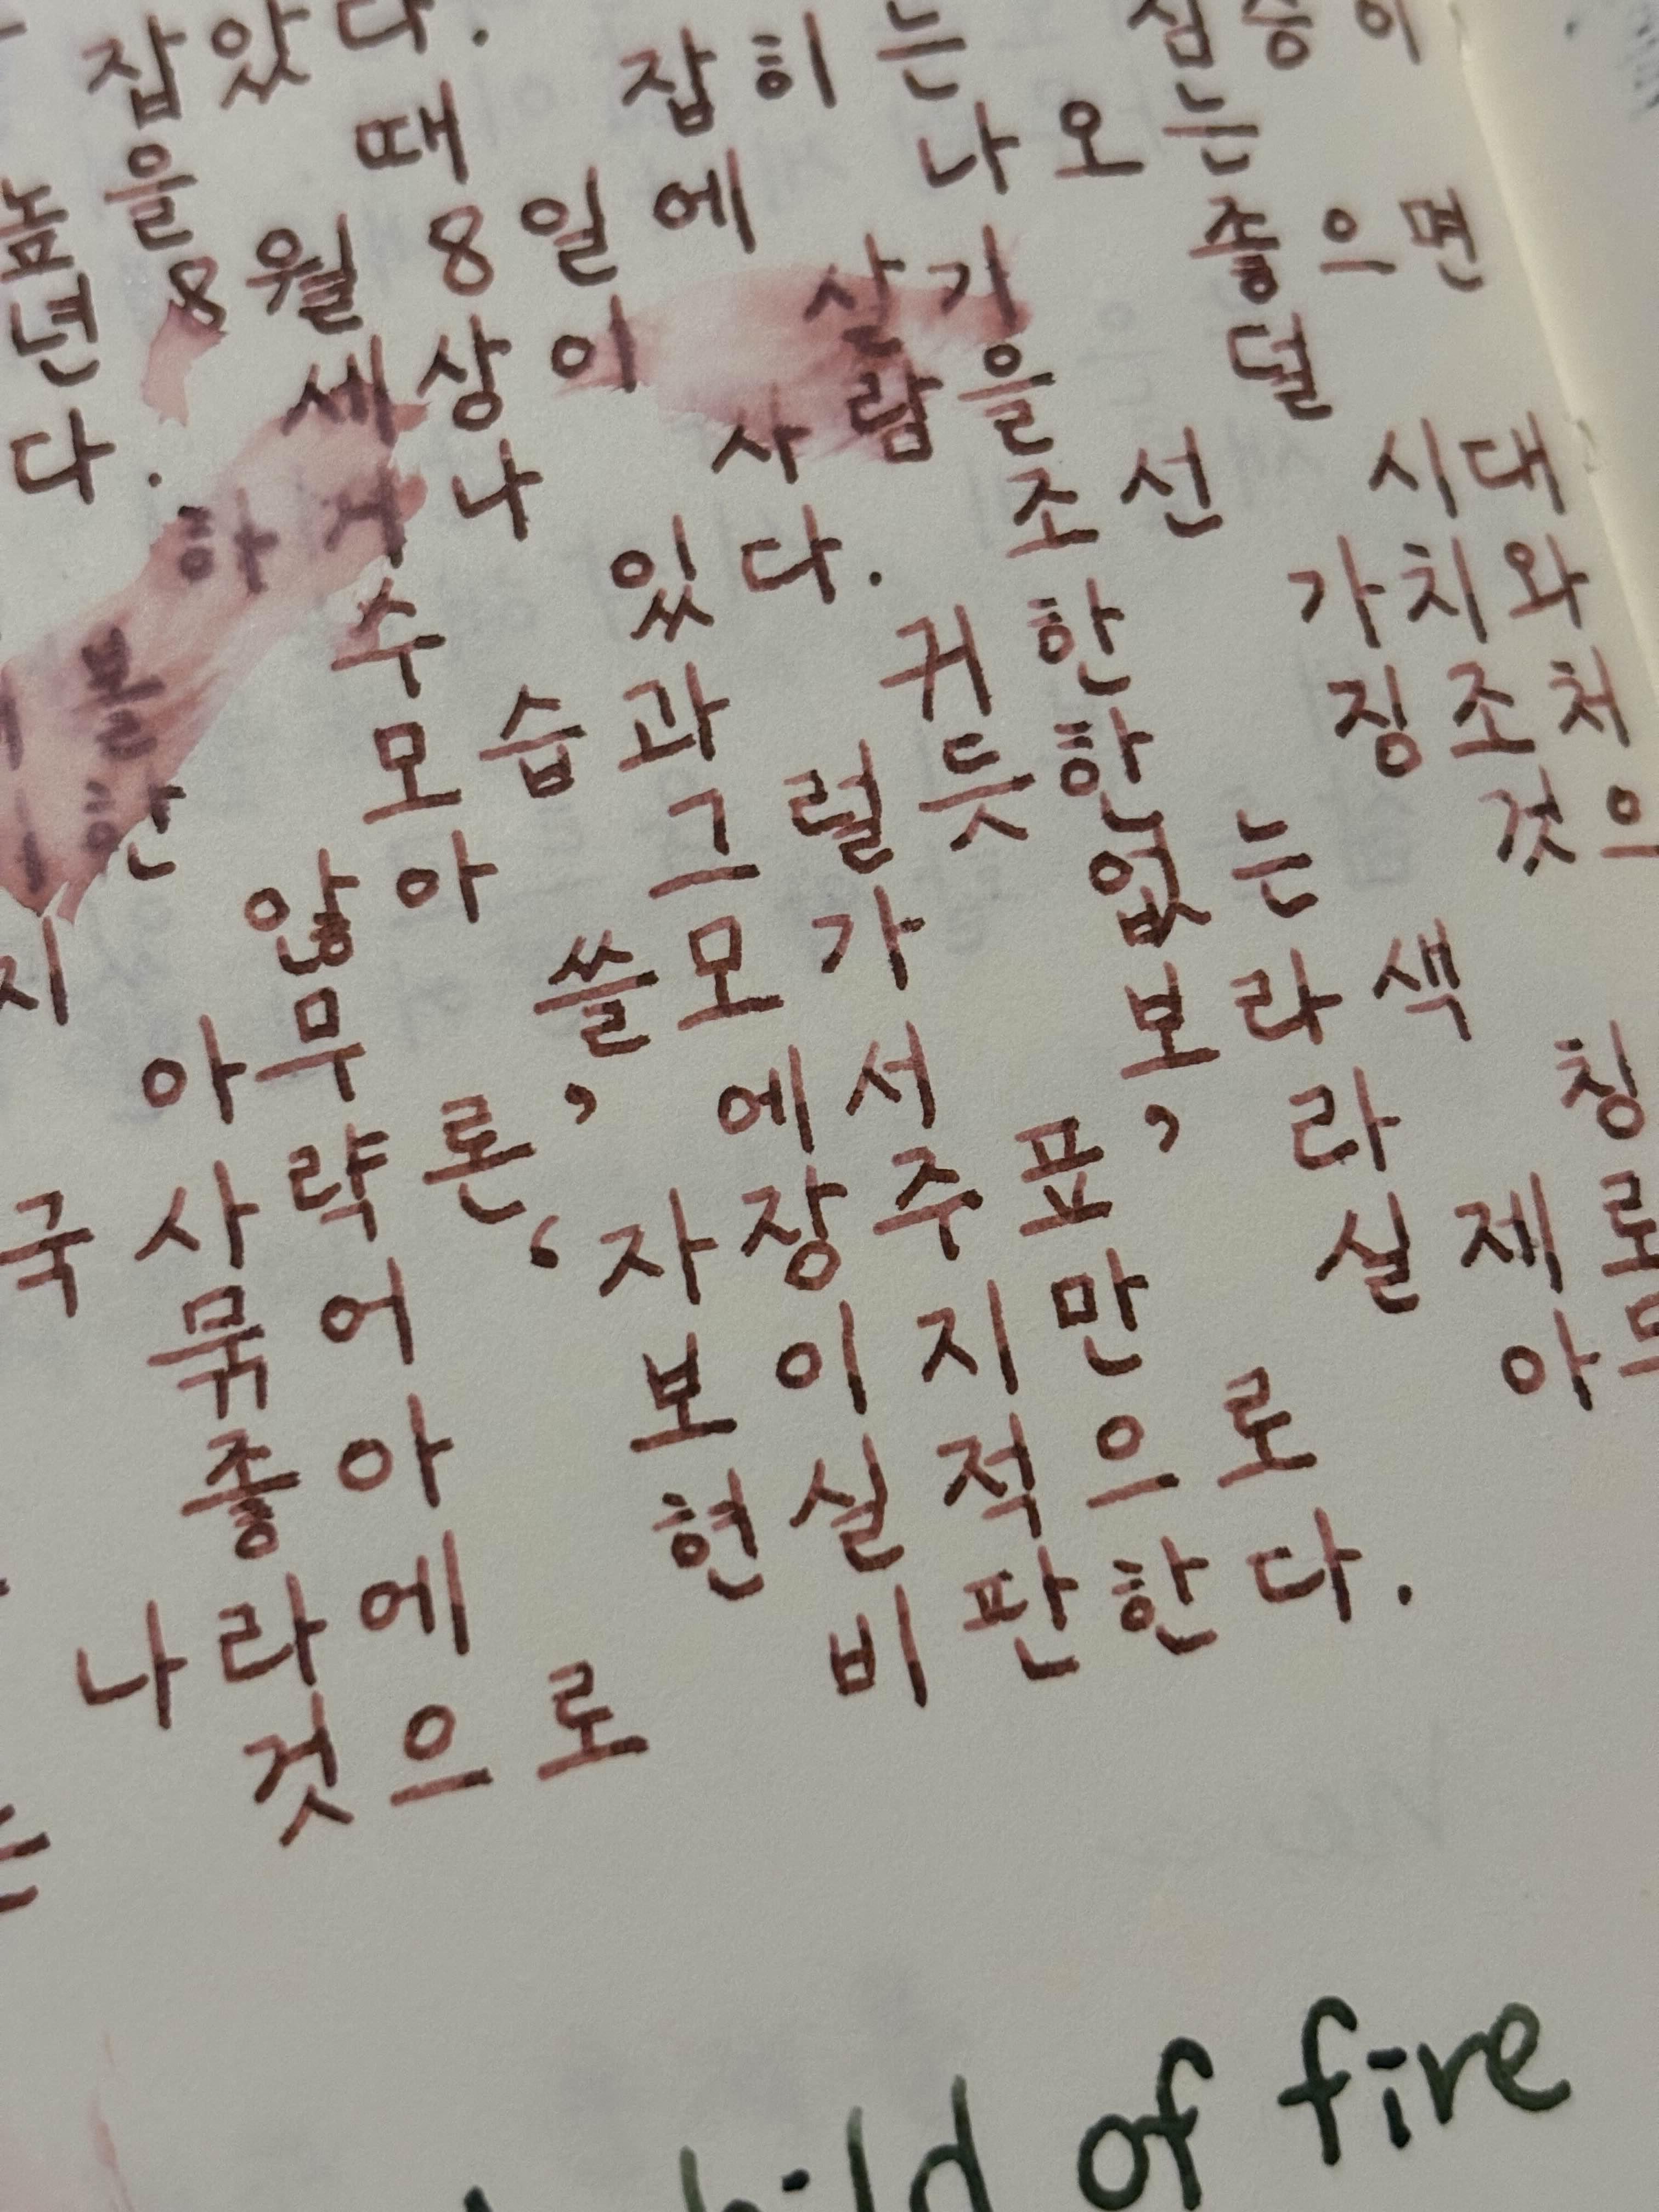 잡았다.
을 때 잡히는 짐승이
년 8월 8일에 나오는
다. 세상이 살기 좋으면
하거나 사람을 덜
볼 수 있다. 조선 시대
한 모습과 귀한 가치와
지 않아 그럴듯한 징조처
아무 쓸모가 없는 것으
국사략론’에서 보라색
묶어 ‘자장주표’라 칭
좋아 보이지만 실제로
나라에 현실적으로 아무
는 것으로 비판한다.
of fire